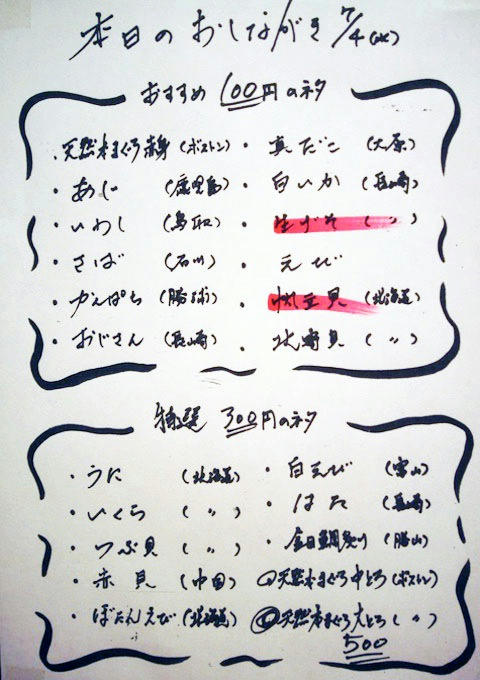 本日のおしながき 7/4(火)
おすすめ 100円のネタ
・天然本まぐろ赤身(ボストン)
・あじ (鹿児島)
・いわし (鳥取)
・さば (石川)
・かんぱち (勝浦)
・おじさん (長崎)
・真だこ (大原)
・白いか (長崎)
・生げそ (〃)
・えび
・帆立貝 (北海道)
・北寄貝 (〃)
特選 300円のネタ
・うに (北海道)
・いくら (〃)
・つぶ貝 (〃)
・赤貝 (中国)
・ぼたんえび (北海道)
・白えび (富山)
・はた (長崎)
・金目鯛炙り (勝山)
○天然本まぐろ中とろ(ボストン)
◎天然本まぐろ大とろ(〃)
500